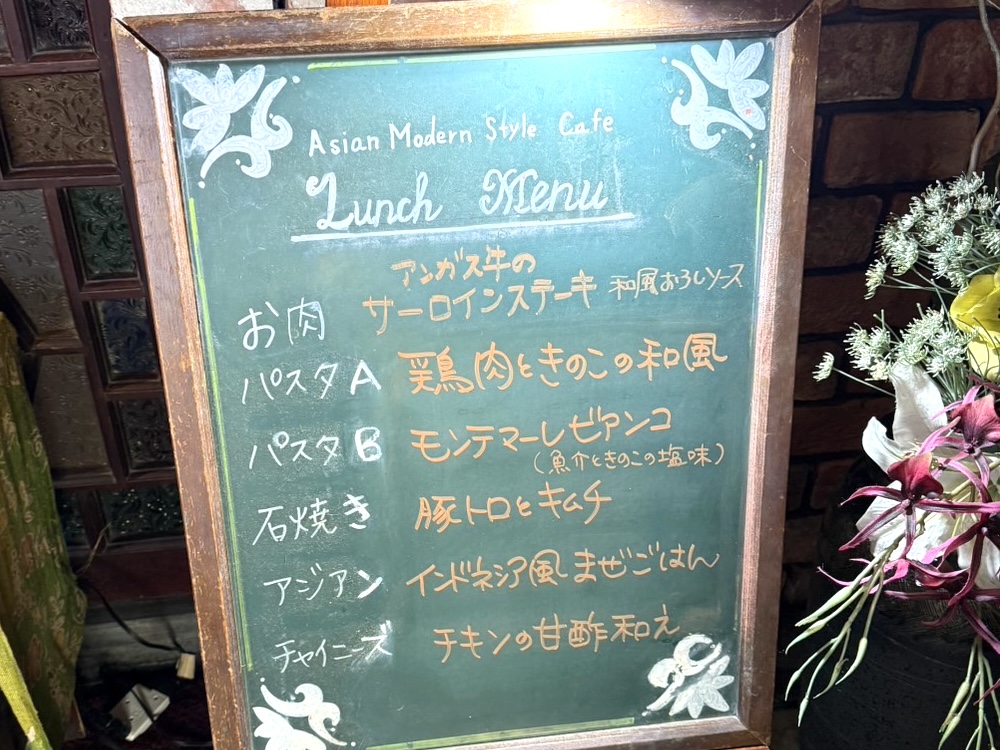 Asian Modern Style Cafe
Lunch Menu
お肉 アンガス牛の
サーロインステーキ 和風おろしソース
パスタA 鶏肉ときのこの和風
パスタB モンテマーレビアンコ
（魚介ときのこの塩味）
石焼き 豚トロとキムチ
アジアン インドネシア風まぜごはん
チャイニーズ チキンの甘酢和え